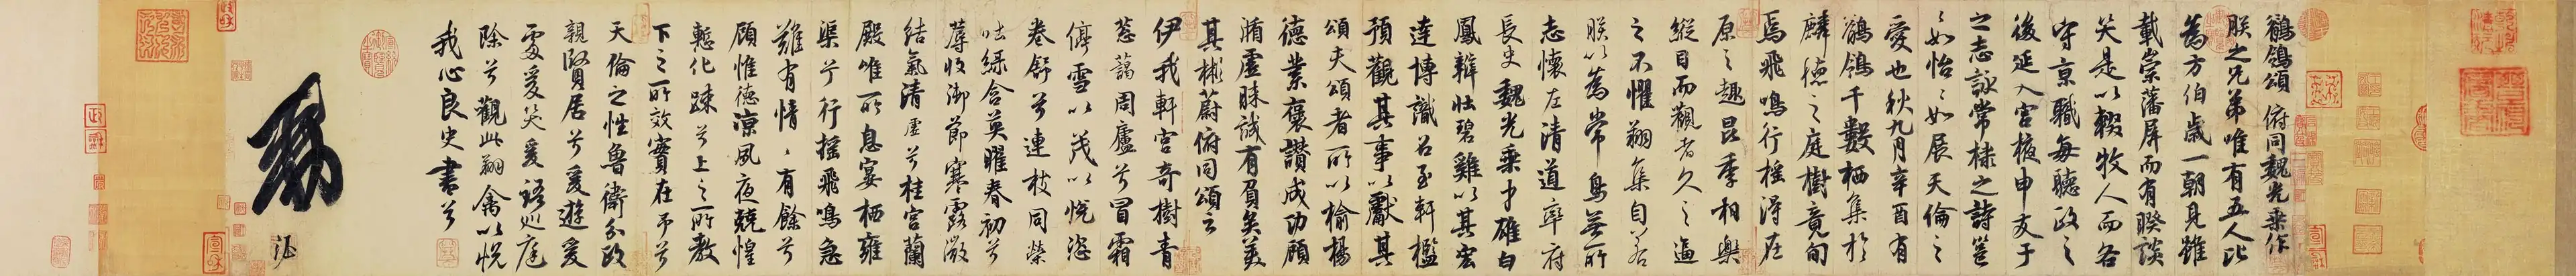 鶺鴒頌 俯同魏光乘作
朕之兄弟唯有五人比
為方伯歲一朝見雖
載崇藩屏而有睽談
笑是以輟牧人而各
守京職每聽政之
後延入宮掖申友于
之志詠常棣之詩邕
〻如怡〻如展天倫之
愛也秋九月辛酉有
鶺鴒千數栖集於
麟德之庭樹竟旬
焉飛鳴行搖得在
原之趣昆季相樂
縱目而觀者久之逼
之不懼翔集自若
朕以為常鳥無所
志懷左清道率府
長史魏光乘才雄白
鳳辯壯碧雞以其宏
達博識召至軒檻
預觀其事以獻其
頌夫頌者所以揄揚
德業襃讃成功顧
循虛昧誠有負矣美
其彬蔚俯同頌云
伊我軒宮奇樹青
蔥藹周廬兮冒霜
停雪以茂以悅恣
卷舒兮連枝同榮
吐綠含英曜春初兮
蓐收御節寒露微
結氣清虛兮桂宮蘭
殿唯所息宴栖雍
渠兮行搖飛鳴急
難有情〻有餘兮
顧惟德涼夙夜兢惶
慙化踈兮上之所教
下之所效實在予兮
天倫之性魯衛分政
親賢居兮爰遊爰
處爰笑爰語巡庭
除兮觀此翔禽以悅
我心良史書兮
勅